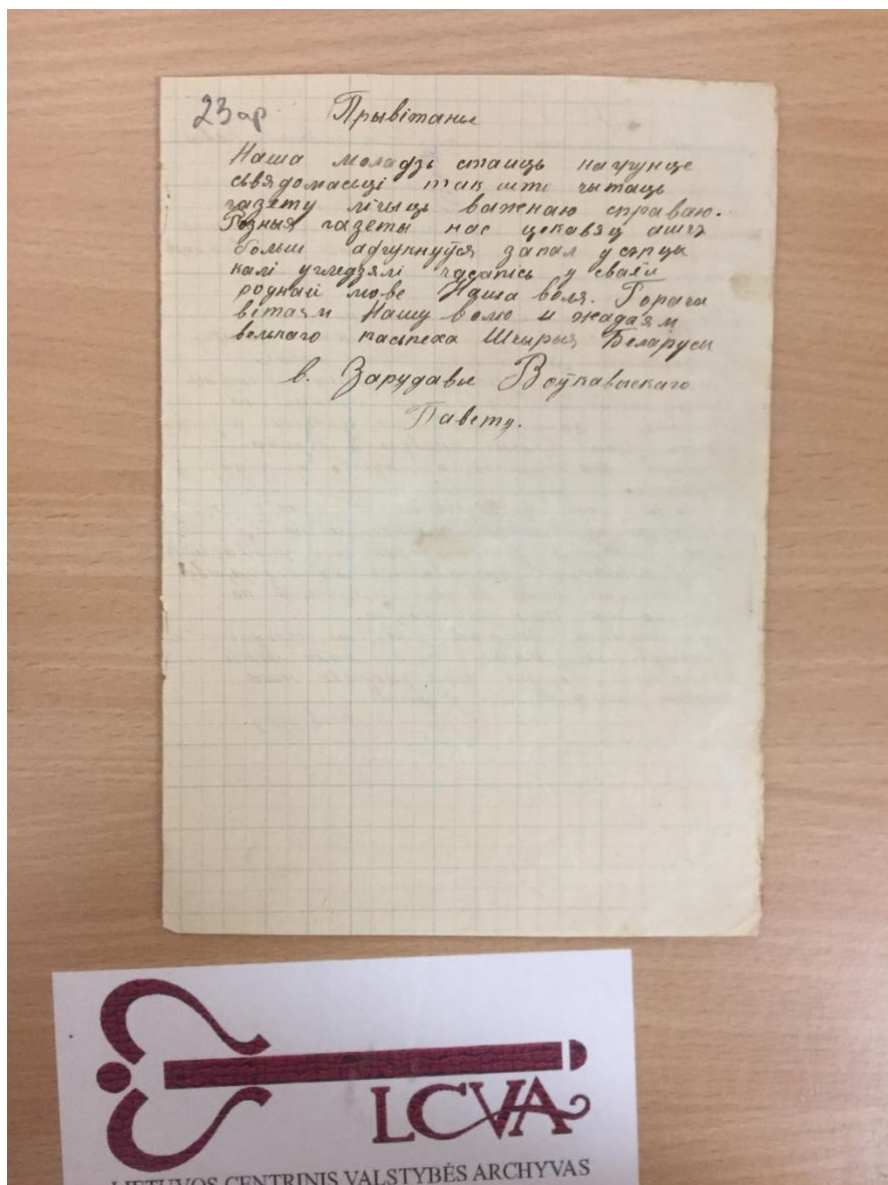 23 ар
Прывітанне
Наша моладзь стаиць на грунце
сьвядомасьці так што чытаць
газэту лічыць важнаю справаю.
Розныя газеты нас цекавяц ашчэ
больш адгукнуўся запал у сэрцы
калі угледзялі часапісь у сваёй
роднай мове Наша воля. Горача
вітаям Нашу волю и жадаям
велькаго паспеха Шчырыя Беларусы
в. Зарудавье Воўкавыскаго
Павету.
LCVA
LIETUVOS CENTRINIS VALSTYBĖS ARCHYVAS